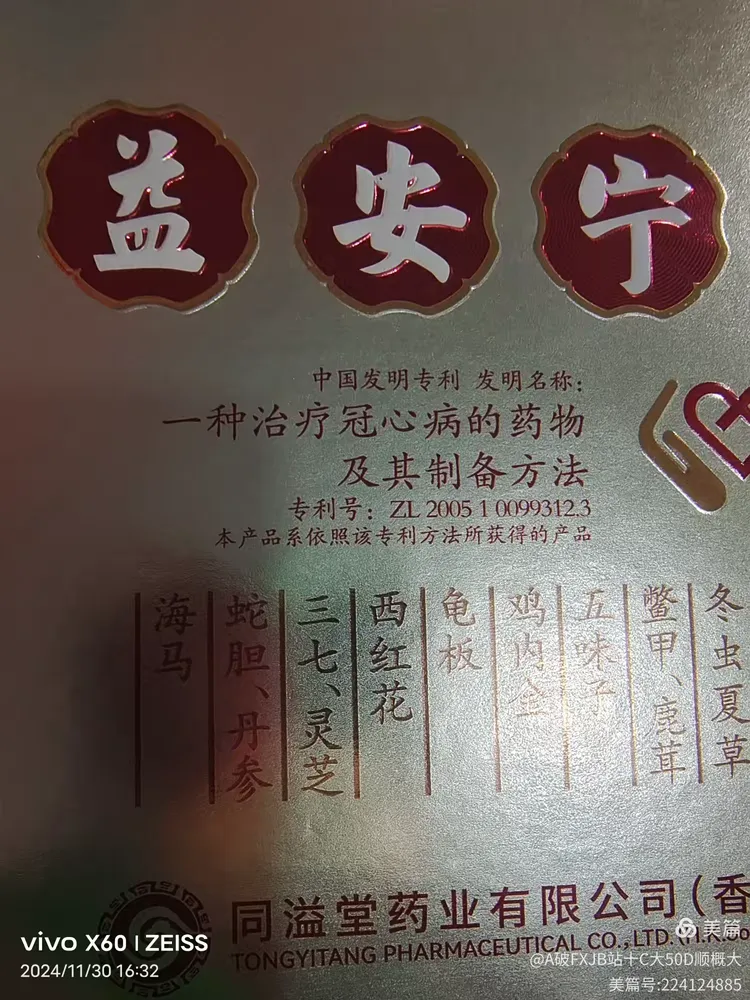 益安宁
中国发明专利 发明名称:
一种治疗冠心病的药物
及其制备方法
专利号: ZL 2005 1 0099312.3
本产品系依照该专利方法所获得的产品
冬虫夏草
鳖甲、鹿茸
五味子
鸡内金
龟板
西红花
三七、灵芝
蛇胆、丹参
海马
同溢堂药业有限公司(香
TONGYITANG PHARMACEUTICAL CO.,LTD.(H.K
vivo X60 | ZEISS
2024/11/30 16:32
美篇
@A破FXJB站十C大50D顺概大
美篇号:224124885